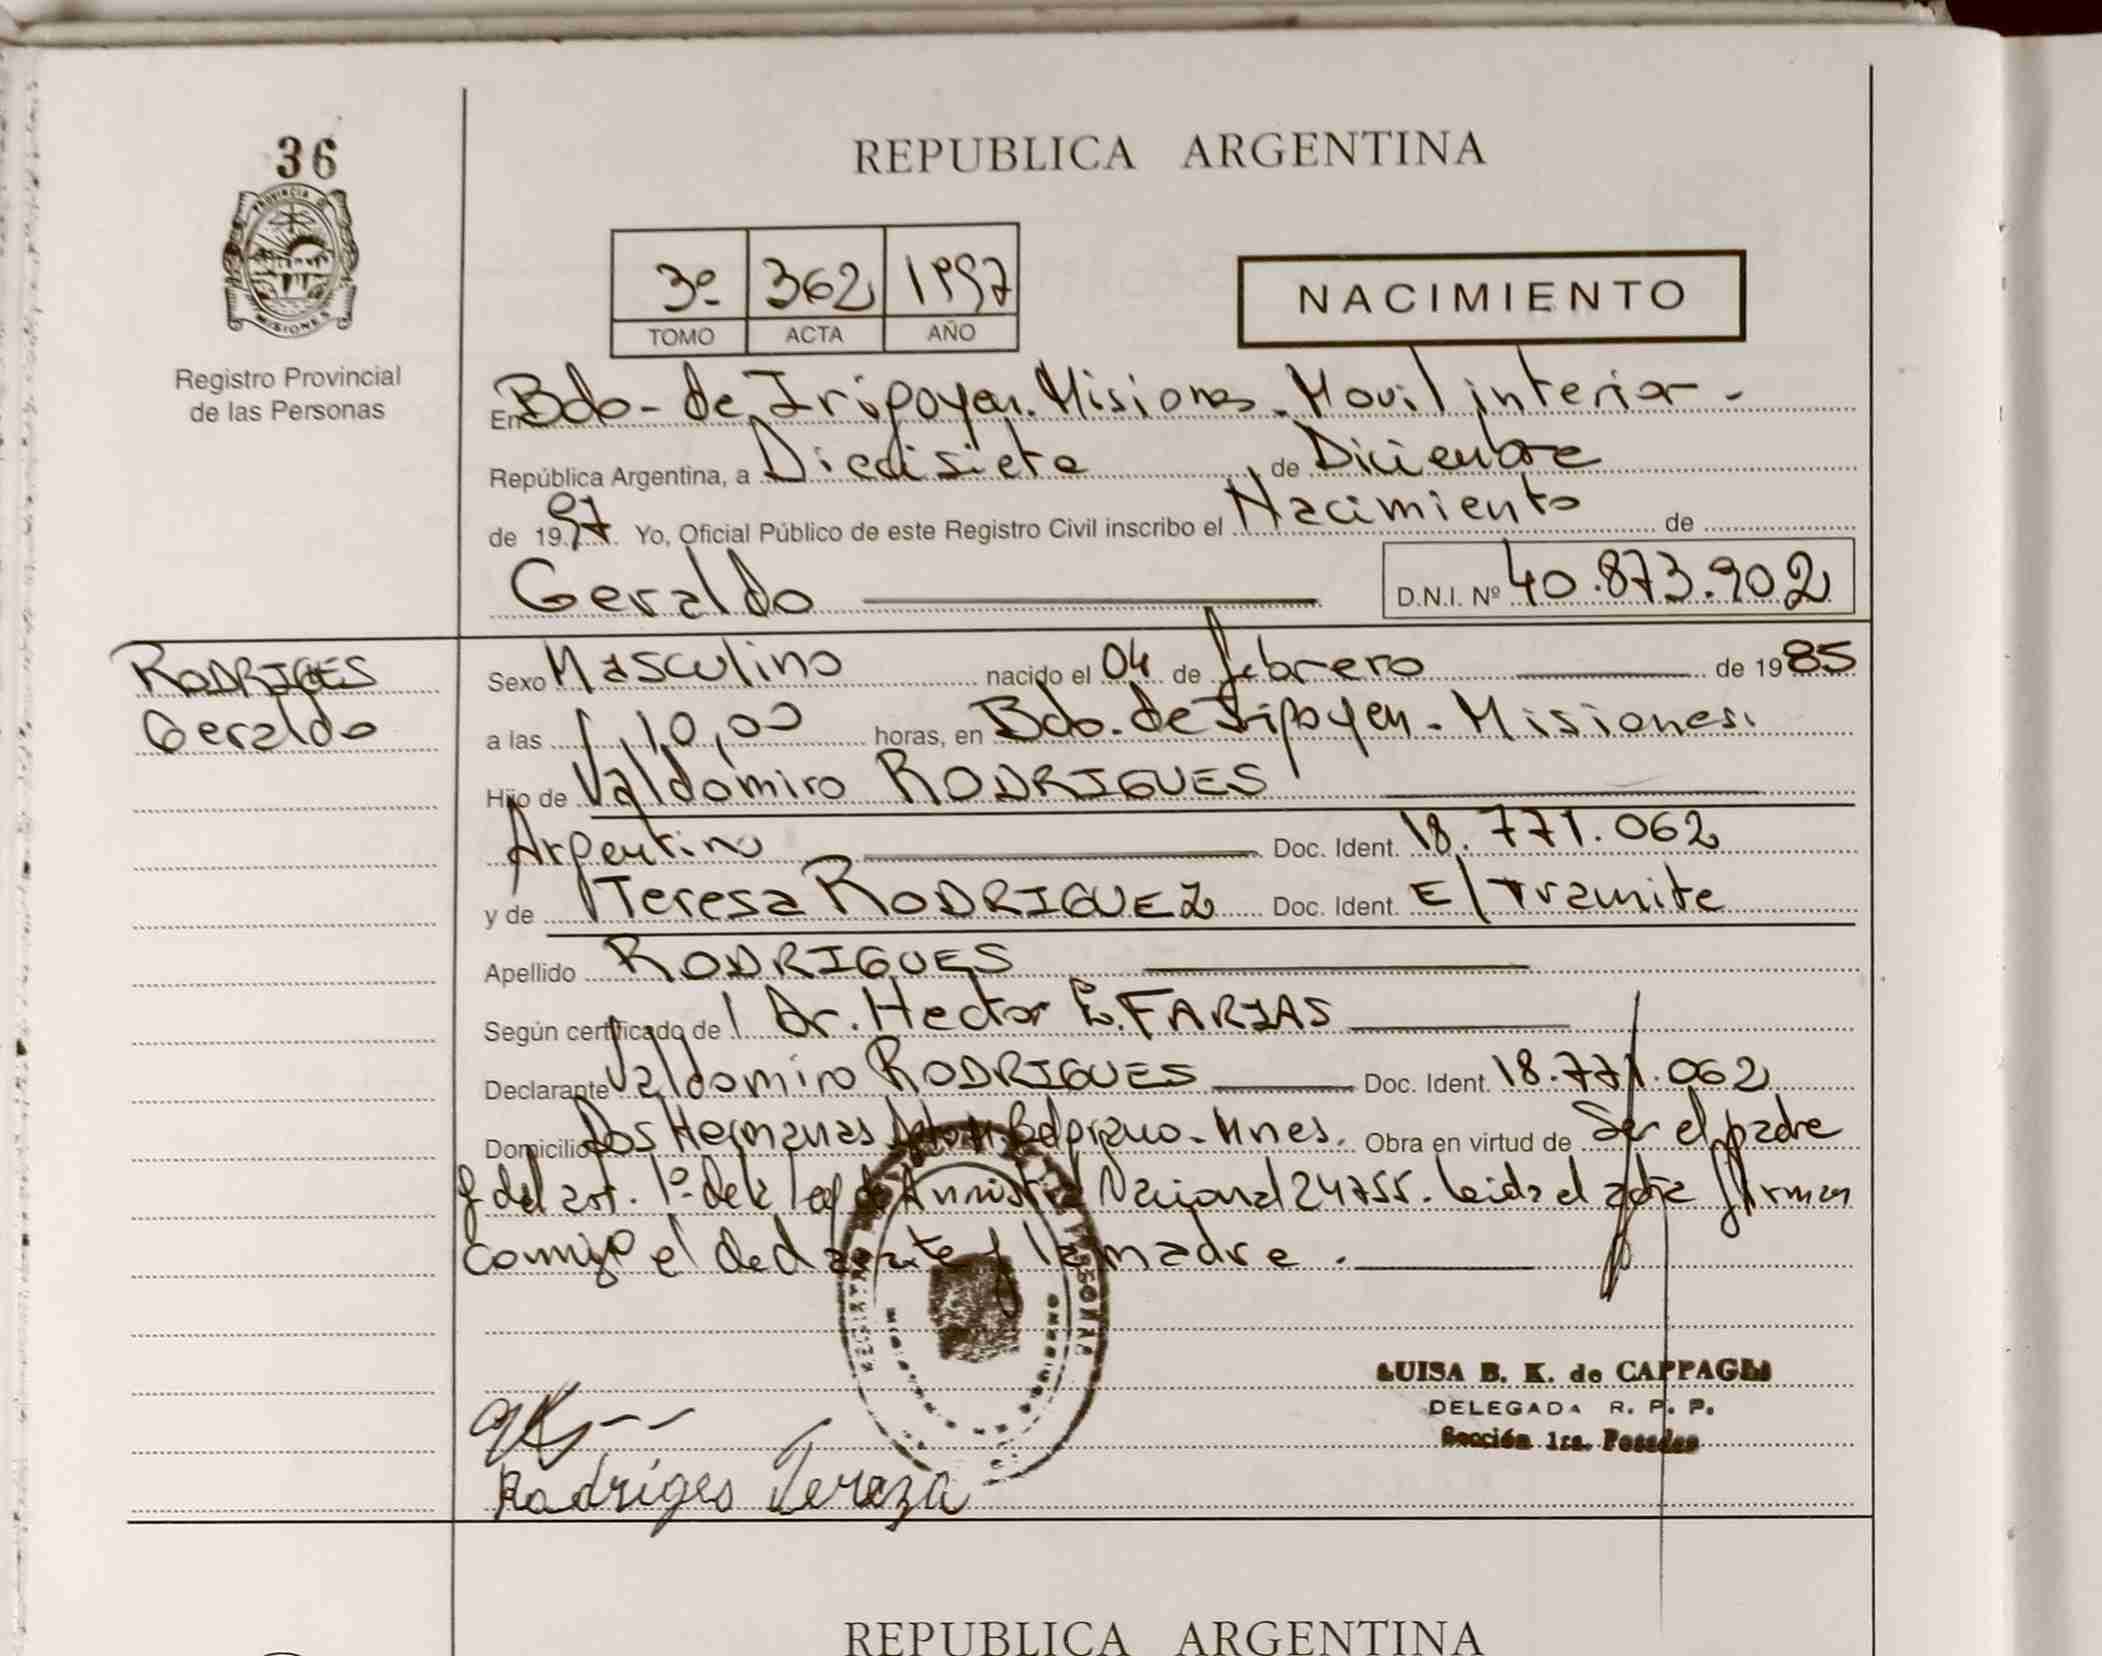 36
PROVINCIA D
MISIONES
Registro Provincial
de las Personas
REPUBLICA ARGENTINA
3º 362 1997
TOMO ACTA AÑO
NACIMIENTO
En Bdo- de Iripoyen. Misiones. Movil interior -
República Argentina, a Diedisiete de Diciembre
de 1997. Yo, Oficial Público de este Registro Civil inscribo el Nacimiento de
Geraldo D.N.I. Nº 40.873.902
RODRIGES
Geraldo
Sexo Masculino nacido el 04 de febrero de 1985
a las 10,00 horas, en Bdo. de Iripoyen - Misiones.
Hijo de Valdomiro RODRIGUES
Argentino Doc. Ident. 18.771.062
y de Teresa RODRIGUEZ Doc. Ident. E/Tramite
Apellido RODRIGUES
Según certificado de Dr. Hector E. FARIAS
Declarante Valdomiro RODRIGUES Doc. Ident. 18.771.062
Domicilio Dos Hermanas Belgrano - Mnes. Obra en virtud de Ser el padre
y del art. 1º de la ley de Amnistia Nacional 24755. Leida el acta firman
comigo el declarante y la madre.
LUISA B. K. de
DELEGADA R. P. P.
Sección 1ra. Posadas
Rodriges Tereza
REPUBLICA ARGENTINA